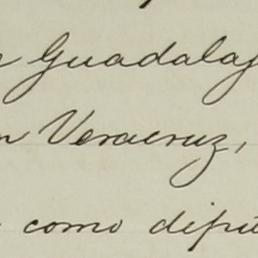 Guadalaj
n Veracruz,
como dipu